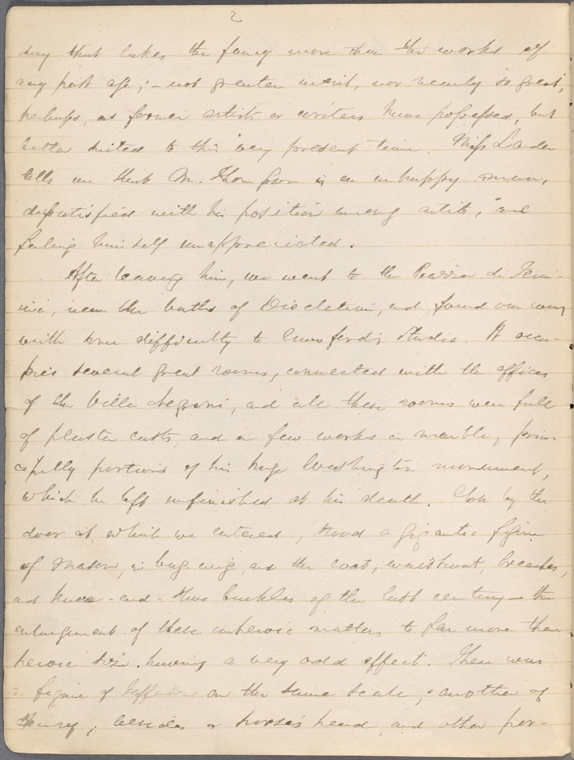 2
day that takes the fancy more than the works of
any past age; - not greater merit, nor nearly so great,
perhaps, as former artists or writers have possessed, but
better suited to this very present time. Miss Lander
tells me that Mr. Thompson is an unhappy man,
dissatisfied with his position among artists, and
feeling himself unappreciated.
After leaving him, we went to the Piazza de Ter-
mini, near the baths of Diocletian, and found our way
with some difficulty to Crawford's Studio. It occu-
pies several great rooms, connected with the offices
of the Villa Negroni, and all these rooms were full
of plaster casts, and a few works in marble, prin-
cipally portions of his huge Washington monument,
which he left unfinished at his death. Close by the
door at which we entered, stood a gigantic figure
of Mason, in bag-wig, and the coat, waistcoat, breeches,
and knee-and-shoe buckles of the last century - the
enlargement of these unheroic matters to far more than
heroic size having a very odd effect. There was
a figure of Jefferson on the same scale; another of
Henry; besides a horse's head, and other por-